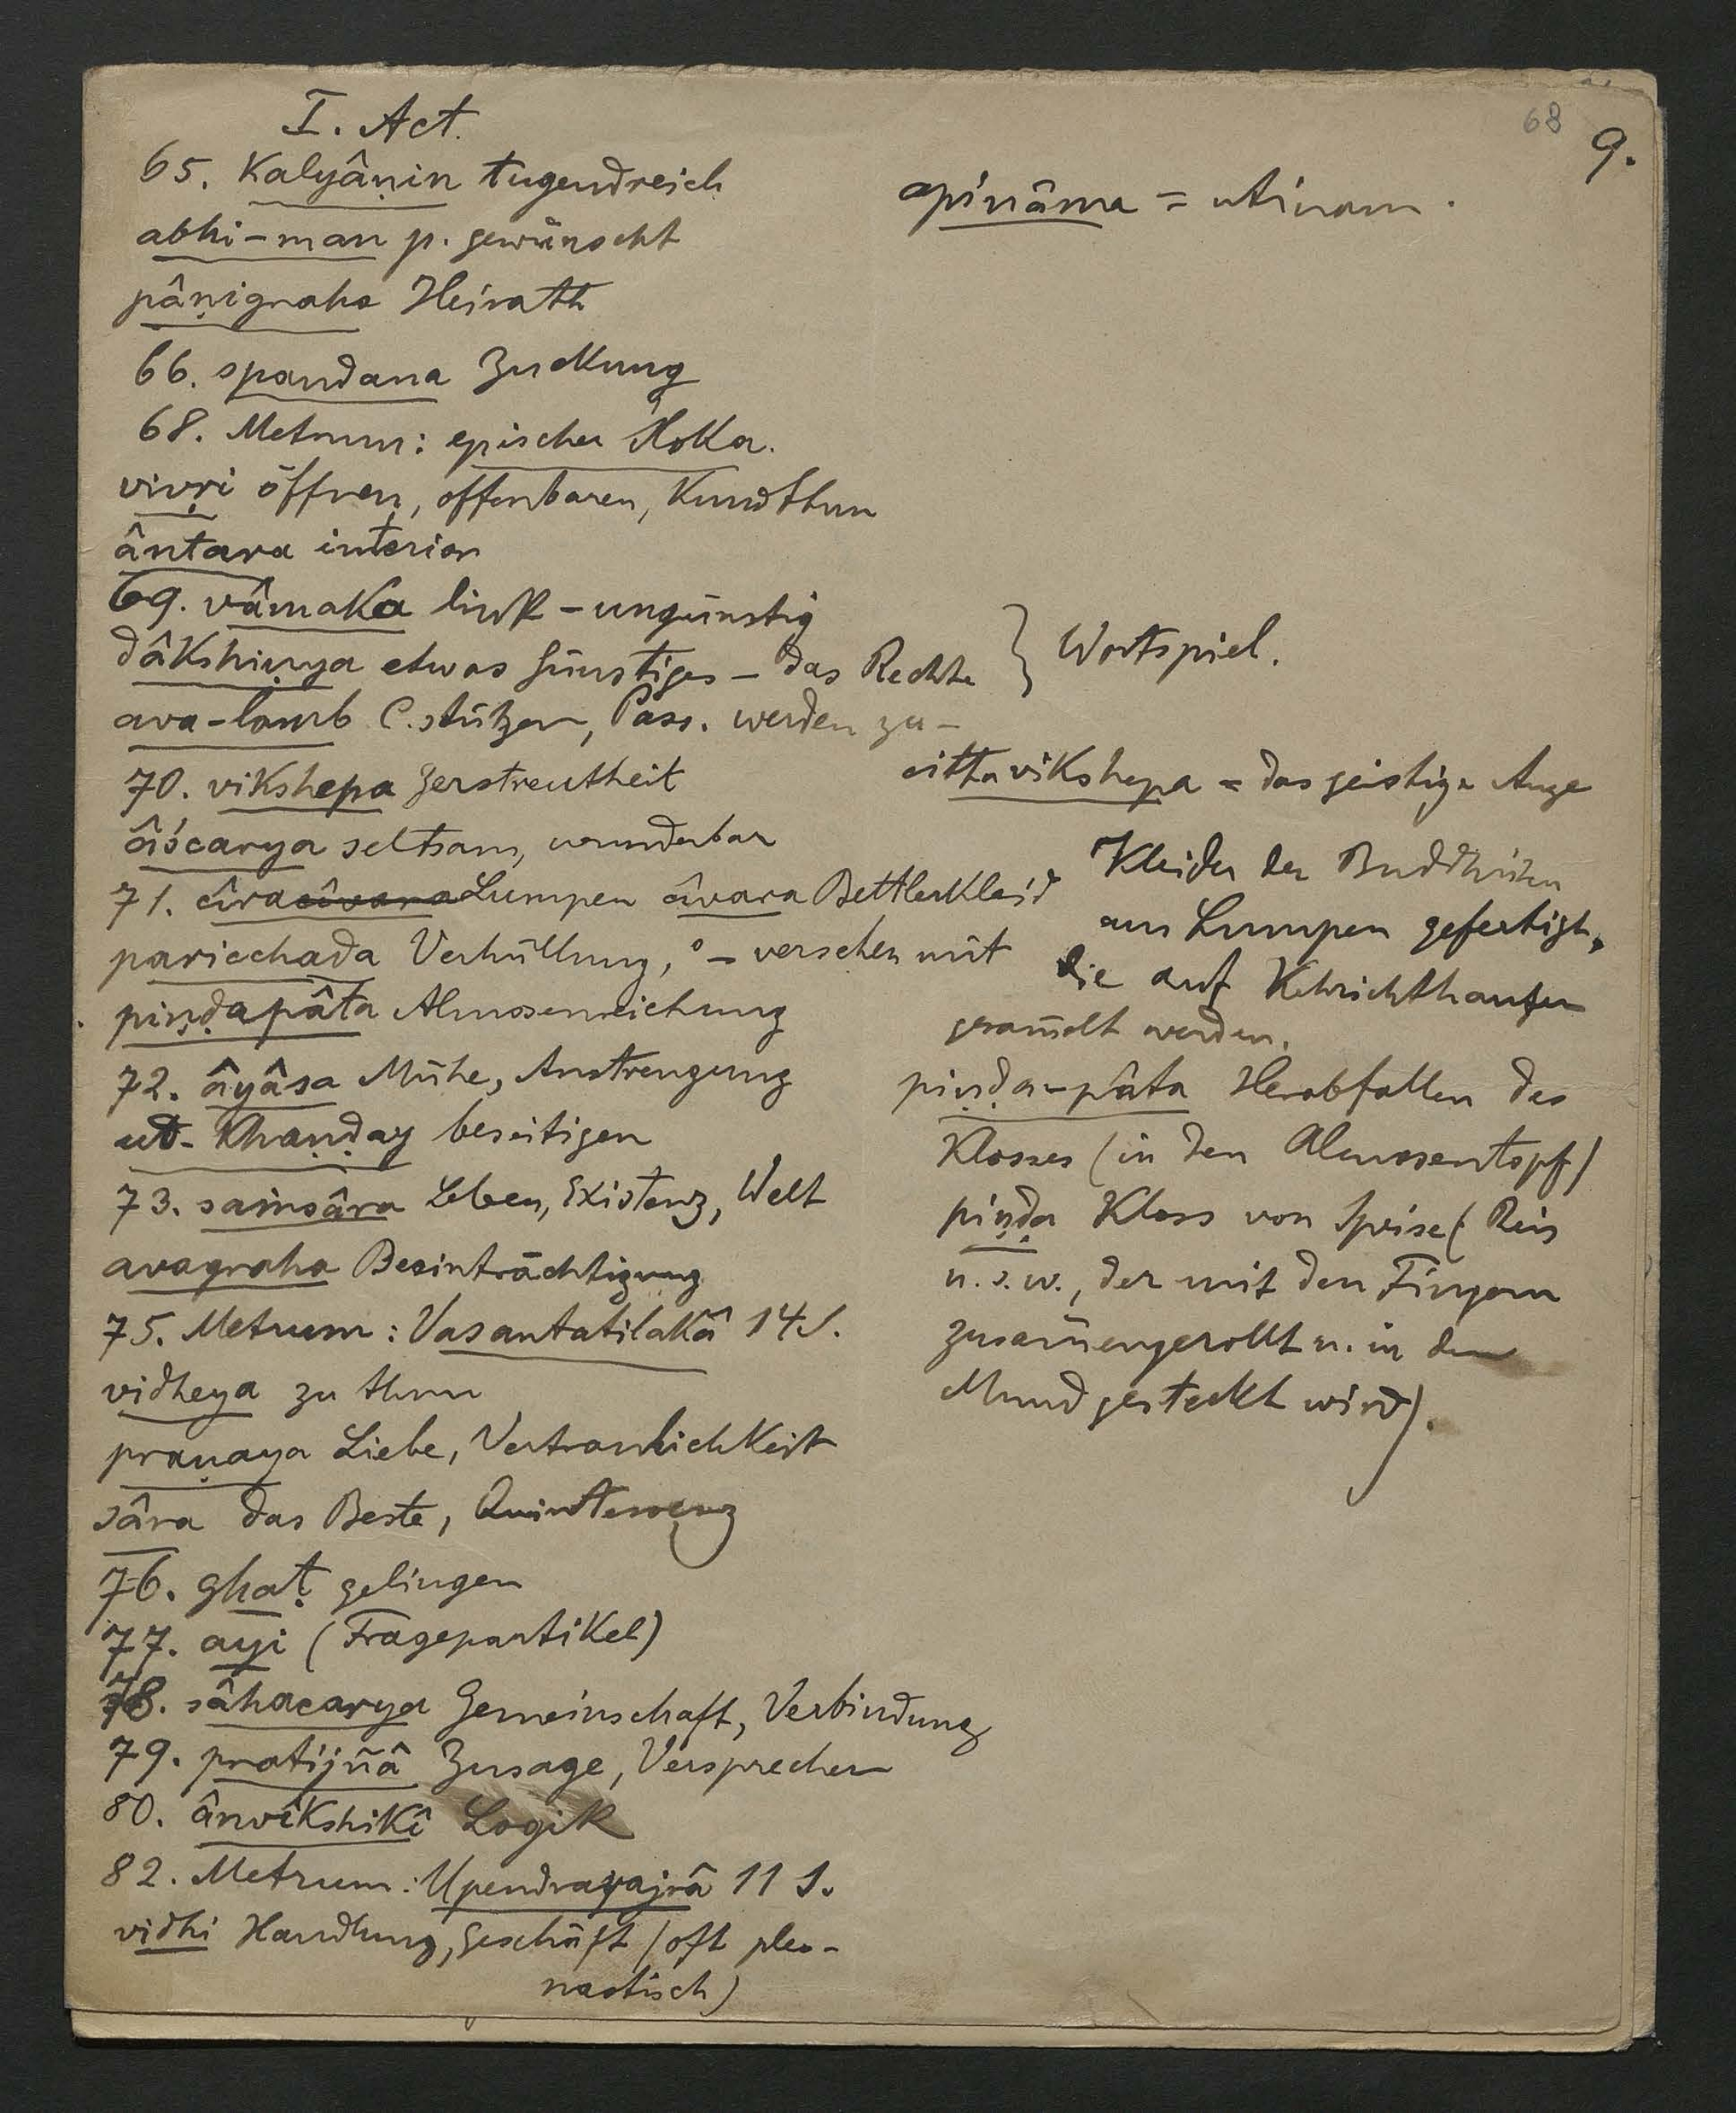 68
9.
I. Act.
65. Kalyâṇin tugendreich
abhi-man p. gewünscht
pâṇigraha Heirath
66. spandana Zuckung
68. Metrum: epischer Śloka.
vivṛi öffnen, offenbaren, Kundthun
ântara interior
69. vâmaka link - ungünstig
dâkshiṇya etwas Günstiges - das Rechte
ava-lamb C. stützen, Pass. werden zu-
70. vikshepa Zerstreutheit
âścarya seltsam, wunderbar
71. cîra cîvara Lumpen cîvara Bettlerkleid
paricchada Verhüllung, °- versehen mit
piṇḍapâta Almosenreichung
72. âyâsa Mühe, Anstrengung
ut-khaṇḍay beseitigen
73. saṁsâra Leben, Existenz, Welt
avagraha Beeinträchtigung
75. Metrum: Vasantatilakâ 14 S.
vidheya zu thun
praṇaya Liebe, Vertraulichkeit
sâra das Beste, Quintessenz
76. ghaṭ gelingen
77. ayi (Fragepartikel)
78. sâhacarya Gemeinschaft, Verbindung
79. pratijñâ Zusage, Versprechen
80. ânvîkshikî Logik
82. Metrum: Upendravajrâ 11 S.
vidhi Handlung, Geschäft (oft pleo-
nastisch)
apinâma = utinam.
} Wortspiel.
cittavikshepa = das geistige Auge
Kleider der Buddhisten
aus Lumpen gefertigt,
die auf Kehrichthaufen
gesam̄elt werden.
piṇḍa-pâta Herabfallen des
Klosses (in den Almosentopf)
piṇḍa Kloss von Speise (Reis
u.s.w., der mit den Fingern
zusam̄engerollt u. in den
Mund gesteckt wird).